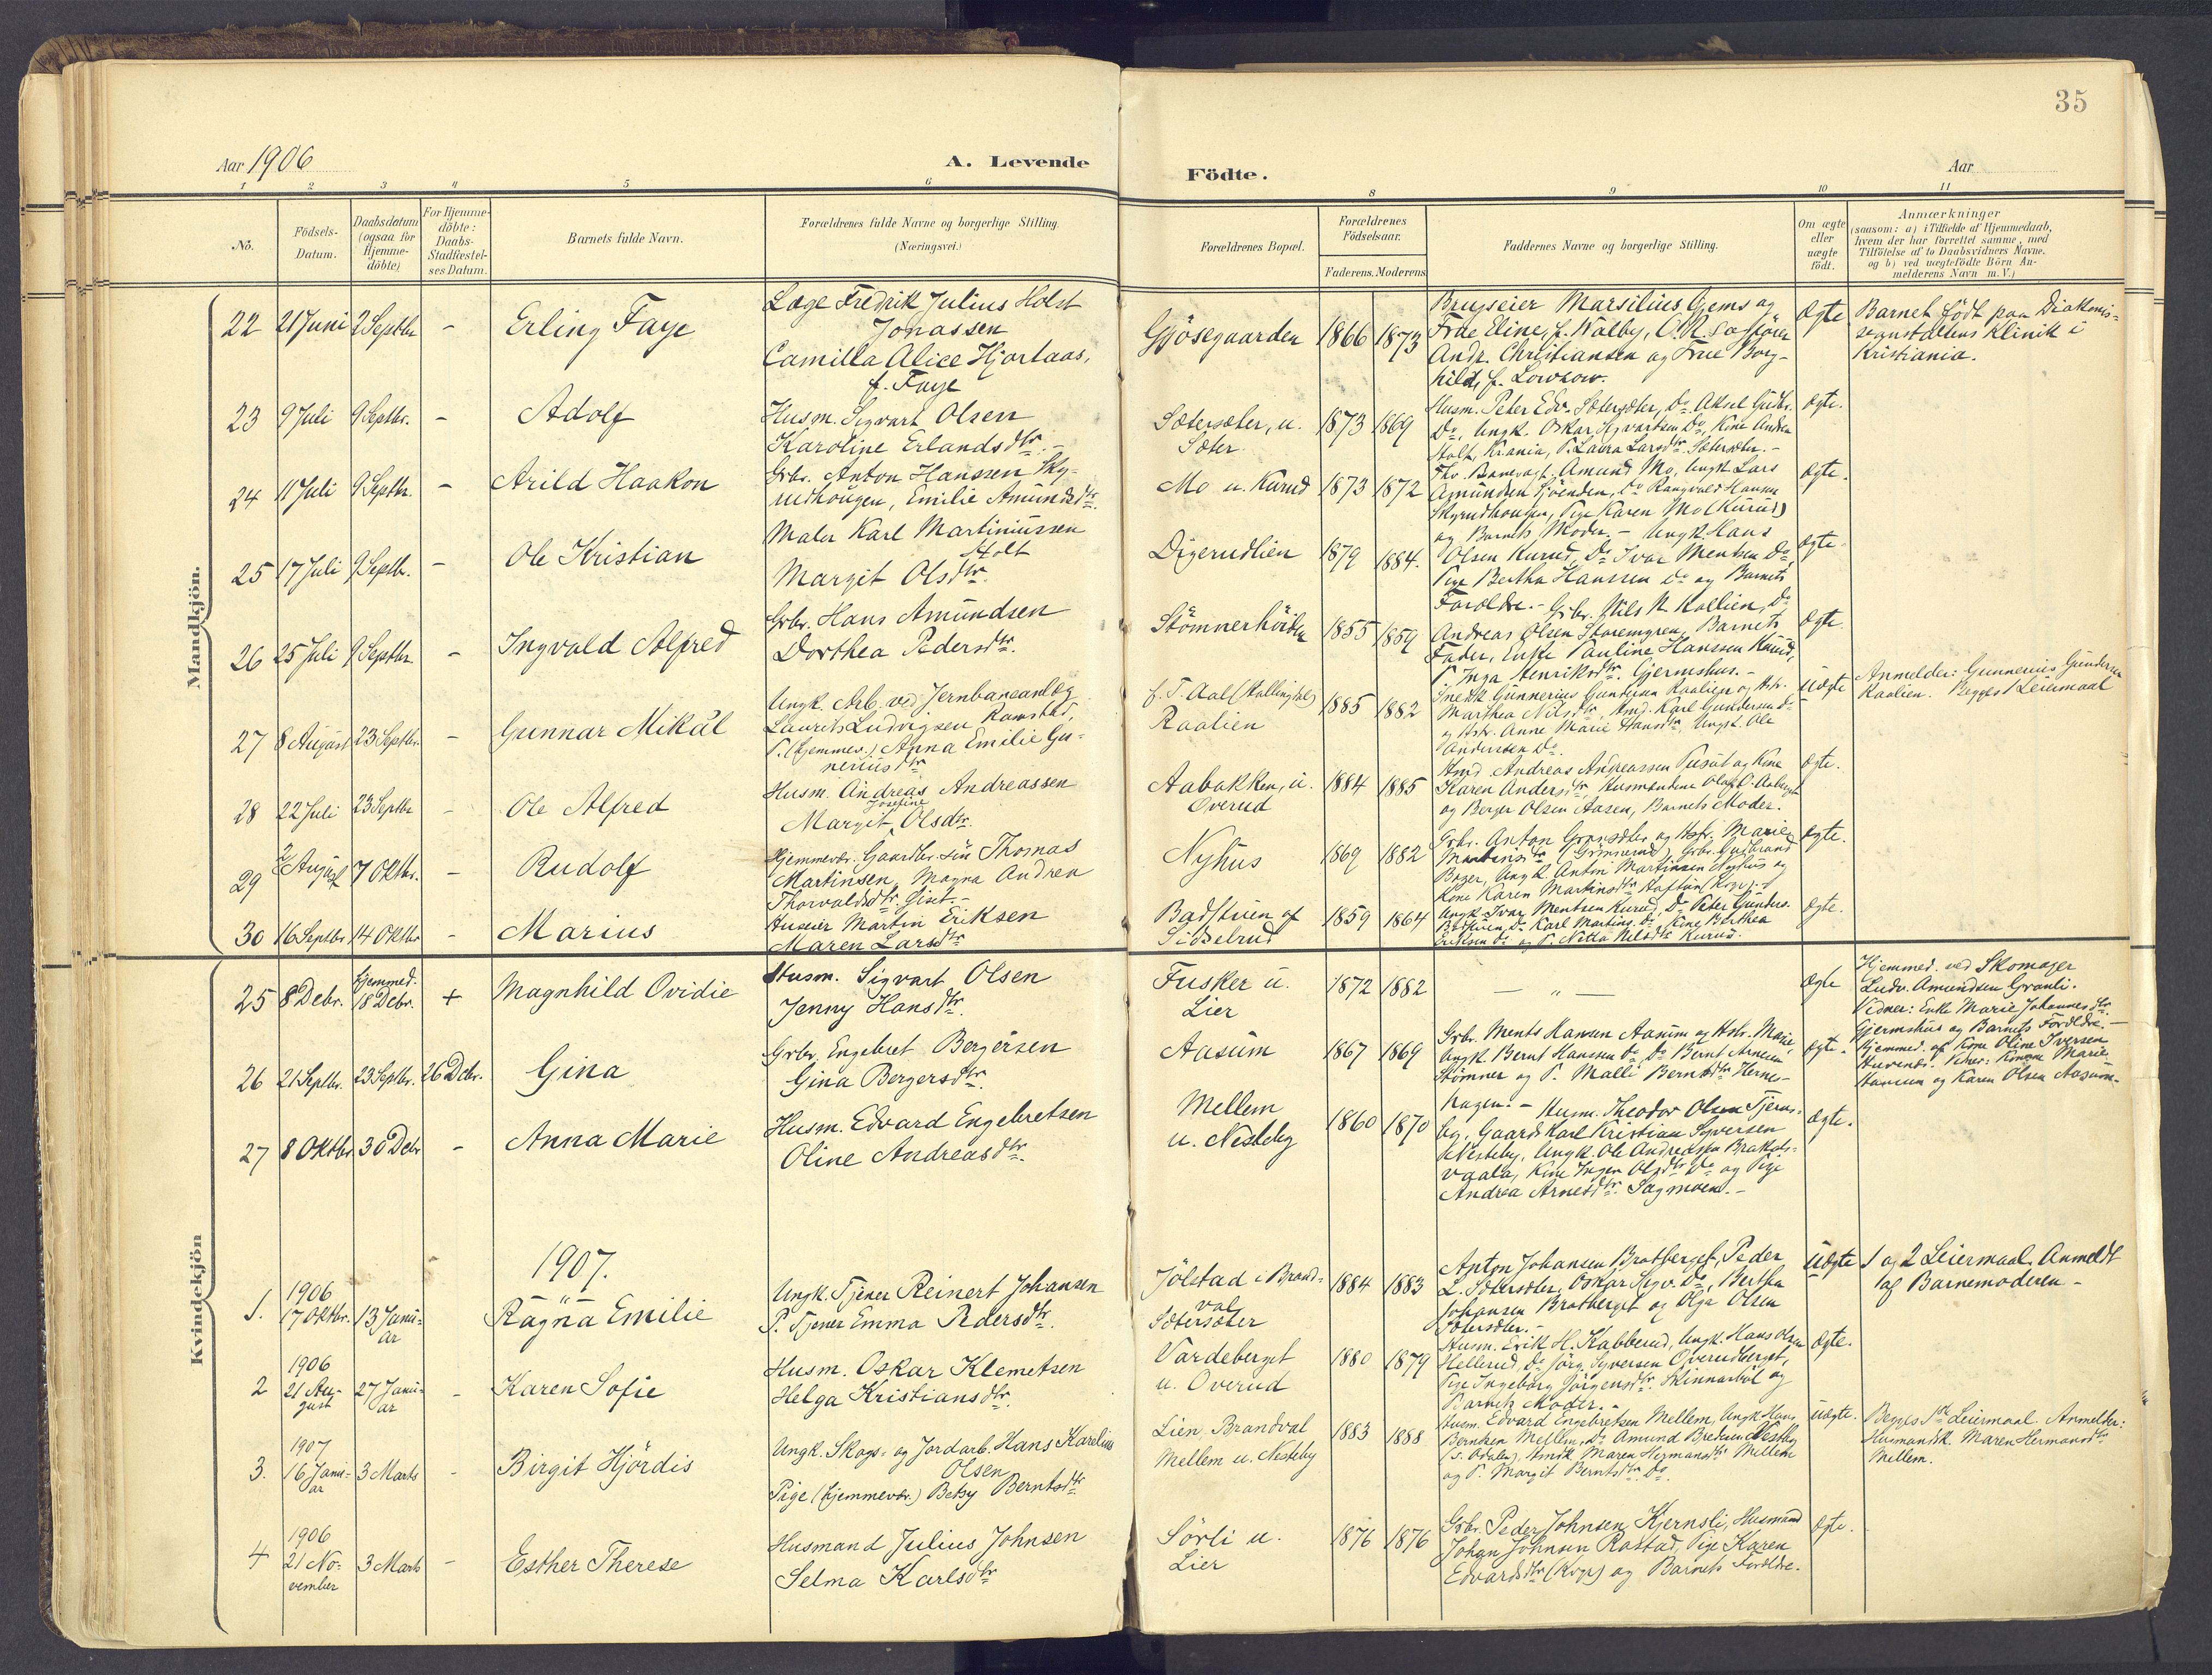 35
Aar 1906
A. Levende
Födte.
Aar
1 2 3 4 5 6 8 9 10 11
No.
Födsels-Datum.
Daabsdatum (ogsaa for Hjemme-döbte)
For Hjemme-döbte: Daabs-Stadfæstel-ses Datum.
Barnets fulde Navn.
Forældrenes fulde Navne og borgerlige Stilling.
(Næringsvei.)
Forældrenes Bopæl.
Forældrenes Födselsaar.
Faderens. Moderens
Faddernes Navne og borgerlige Stilling.
Om ægte eller uægte födt.
Anmærkninger
(saasom: a) i Tilfælde af Hjemmedaab,
hvem der har forrettet samme, med
Tilföielse af to Daabsvidners Navne.
og b) ved uægtefödte Börn An-
melderens Navn m. V.)
Mandkjön.
22 21 Juni 2 Septbr - Erling Faye
Læge Fredrik Julius Holst
Jonassen
Camilla Alice Hjortaas,
f. Faye
Gjösegaarden 1866 1873
Brugseier Marsilius Gjems og
Frue Eline, f. Walby, O.R. Sagförer
Andr. Christiansen og Frue Borg-
hild, f. Lowzow.
Ægte
Barnet födt paa Diakonis-
seanstaltens Klinik i
Kristiania.
23 9 Juli 9 Septbr. - Adolf
Husm. Sigvart Olsen
Karoline Erlandsdtr. -
Sætersæter, u.
Sæter
1873 1869
Husm. Peter Edv. Sætersæter, Do Aksel Gudbr.
Do, Ungk. Oskar Sigvartsen Do, Kone Andrea
Holt, Krania, P. Laura Larsdtr. Sætersæter. -
Ægte.
24 11 Juli 9 Septbr. - Arild Haakon
Grbr. Anton Hanssen Sky-
rudhougen, Emilie Amundsdtr.
Mo u. Kurud 1873 1872
Fhv. Banevogt. Amund Mo, Ungk. Lars
Amundsen Sjöenden, Do Rangvald Hansen
Skyrudhougen, Pige Karen Mo (Kurud)
og Barnets Moder. -
Ægte.
25 17 Juli 9 Septb. - Ole Kristian
Maler Karl Martiniussen
Holt
Margit Olsdtr.
Digerudlien 1879 1884.
Ungk. Hans
Olsen Kurud, Do Ivar Mentsen Do,
Pige Bertha Hanssen Do og Barnets
Forældre. -
Ægte.
26 25 Juli 9 Septbr. - Ingvald Alfred
Grbr. Hans Amundsen
Dorthea Pedersdtr.
Stömnerhöiden 1855 1859
Grbr. Nils N. Kallien, Do
Andreas Olsen Storemyren, Barnets
Fader, Enke Pauline Hanssen Kurud,
P. Inga Henriksdtr. Gjermshus. -
Ægte.
27 8 August 23 Septbr. - Gunnar Mikal
Ungk. Arb. ved Jernbaneanlæg
Laurits Ludvigsen Ramstad,
P. (hjemmev.) Anna Emilie Gu-
neriusdtr
f. T. Aal (Hallingdal)
Raalien
1885 1882
Gunnerius Gundersen Raalien og Hstr.
Marthea Nilsdtr, Hmd. Karl Gundersen Do
og Hstr. Anne Marie Hansdtr, Ungk. Ole
Andersen Do.
Uægte
Anmelder: Gunnerius Gundersen
Raalien. Begges 1 Leiermaal
28 22 Juli 23 Septbr - Ole Alfred
Husm. Andreas Andreassen
Josefine
Margit Olsdtr.
Aabakken, u.
Overud
1884 1885
Hmd. Andreas Andreassen og Kone
Karen Andersdtr, Husmændene Olaf O. Aabogen
og Berger Olsen Aasen, Barnets Moder.
Ægte.
29 2 August 7 Oktbr. - Rudolf
Hjemmevær. Gaardbr.sön Thomas
Martinsen, Magna Andrea
Thorvaldsdtr. Gist. -
Nyhus 1869 1882
Grbr. Anton Gransæter og Hstr. Marie
Martinsdtr (Grinnerud), Grbr. Gudbrand
Boger, Ungk. Anton Martinsen Nyhus og
Kone Karen Martinsdtr Haftun (Kongsv.)
Ægte.
30 16 Septbr 14 Oktbr - Marius
Huseier Martin Eriksen
Maren Larsdtr
Badstuen af
Sibelrud
1859 1864
Ungk. Ivar Mentsen Kurud, Do Peter Gunders.
Badstuen, Do Karl Martins. Do, Kone Berthea
Eriksen Do og P. Netta Nilsdtr Kurud.
Ægte.
Kvindekjön
25 8 Debr. Hjemmed. 18 Debr. + Magnhild Ovidie
Husm. Sigvart Olsen
Jenny Hansdtr.
Fusker u.
Lier
1872 1882
— " —
Ægte
Hjemmed. ved Skomager
Ludv. Amundsen Granli.
Vidner: Enke Marie Johannesdtr.
Gjermshus og Barnets Forældre. -
26 21 Septbr. 23 Septbr. 26 Debr. Gina
Grbr. Engebret Bergersen
Gina Bergersdtr.
Aasum 1867 1869
Grbr. Ments Hansen Aasum og Hstr. Marie,
Ungk. Bernt Hansen Do, Do Bernt Arnesen
Stömner og P. Malli Berntsdtr Hernes-
hagen. -
Ægte.
Hjemmed. af Kone Oline Iversen
Konerne Marie
Hansen og Karen Olsen Aasum. -
27 8 Oktbr. 30 Debr - Anna Marie
Husm. Edvard Engebretsen
Oline Andreasdtr.
Mellem
u. Nesteby
1860 1870
Husm. Theodor Olsen Tjerns-
Gaardb. Karl Kristian Syversen
Nesteby, Ungk. Ole Andreassen Brakols-
vaala, Kone Inger Olsdtr Do og Pige
Andrea Arnesdtr. Sagmoen. -
Ægte.
1907.
1. 1906 17 Oktbr. 13 Janu-ar - " - Ragna Emilie
Ungk. Tjener Reinert Johansen
P. Tjener Emma Pedersdtr.
Jölstad i Brand-
val
Sætersæter
1884 1883
Anton Johansen Bratberget, Peder
L. Sætersæter, Oskar Sigv. Do, Bertha
Johansen Bratberget og Olga Olsen
Sætersæter. -
Uægte
1 og 2 Leiermaal. Anmeldt
af Barnemoderen -
2 1906 21 Au-gust 27 Janu-ar - Karen Sofie
Husm. Oskar Klemetsen
Helga Kristiansdtr.
Vardeberget
u. Overud
1880 1879
Husm. Erik H. Kabberud, Ungk. Hans Olsen
Hellerud, Do Jörg. Syversen Overudberget,
Pige Ingeborg Jörgensdtr. Skinnarböl og
Barnets Moder. -
Ægte.
3. 1907 16 Janu-ar 3 Marts - Birgit Hjördis
Ungk. Skogs- og Jordarb. Hans Karelius
Olsen
Pige (hjemmevær.) Betsy Berntsdtr
Lien, Brandval
Mellem u. Nesteby
1883 1888
Husm. Edvard Engebretsen Mellem, Ungk. Hans
Berntsen Mellem, Do Amund Bredesen Nesteby
(S. Odalen), Maren Hermansdtr Mellem
og P. Margit Berntsdtr. Do.
Uægte.
Begges 1ste Leiermaal. Anmelder:
Husmandsk. Maren Hermansdtr
Mellem.
4 1906 21 No-vember 3 Marts - Esther Therese
Husmand Julius Johnsen
Selma Karlsdtr
Sörli u.
Lier
1876 1876
Grbr. Peder Johnsen Kjernsli, Husmand
Johan Johnsen Rastad, Pige Karen
Edvardsdtr (Kvgr) og Barnets Forældre.
Ægte.